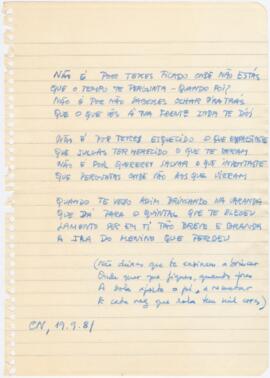 NÃO É POR TERES FICADO ONDE NÃO ESTÁS
QUE O TEMPO TE PERGUNTA - QUANDO FOI?
NÃO É POR NÃO PODERES OLHAR PRA TRÁS
QUE O QUE VÊS À TUA FRENTE INDA TE DÓI
NÃO É POR TERES ESQUECIDO O QUE
QUE JULGAS TER MERECIDO O QUE TE DERAM
NÃO É POR QUERERES SALVAR O QUE INVENTASTE
QUE PERGUNTAS ONDE NÃO AOS QUE VIERAM
QUANDO TE VEJO ASSIM BRINCANDO NA VARANDA
QUE DÁ PARA O QUINTAL QUE TE
LAMENTO SER EM TI TÃO BREVE E BRANDA
A IRA DO MENINO QUE PERDEU
(Não deixes que te ensinem a brincar
Onde quer que fiques, quando
A bola
E cada vez que
CN, 19.9.81